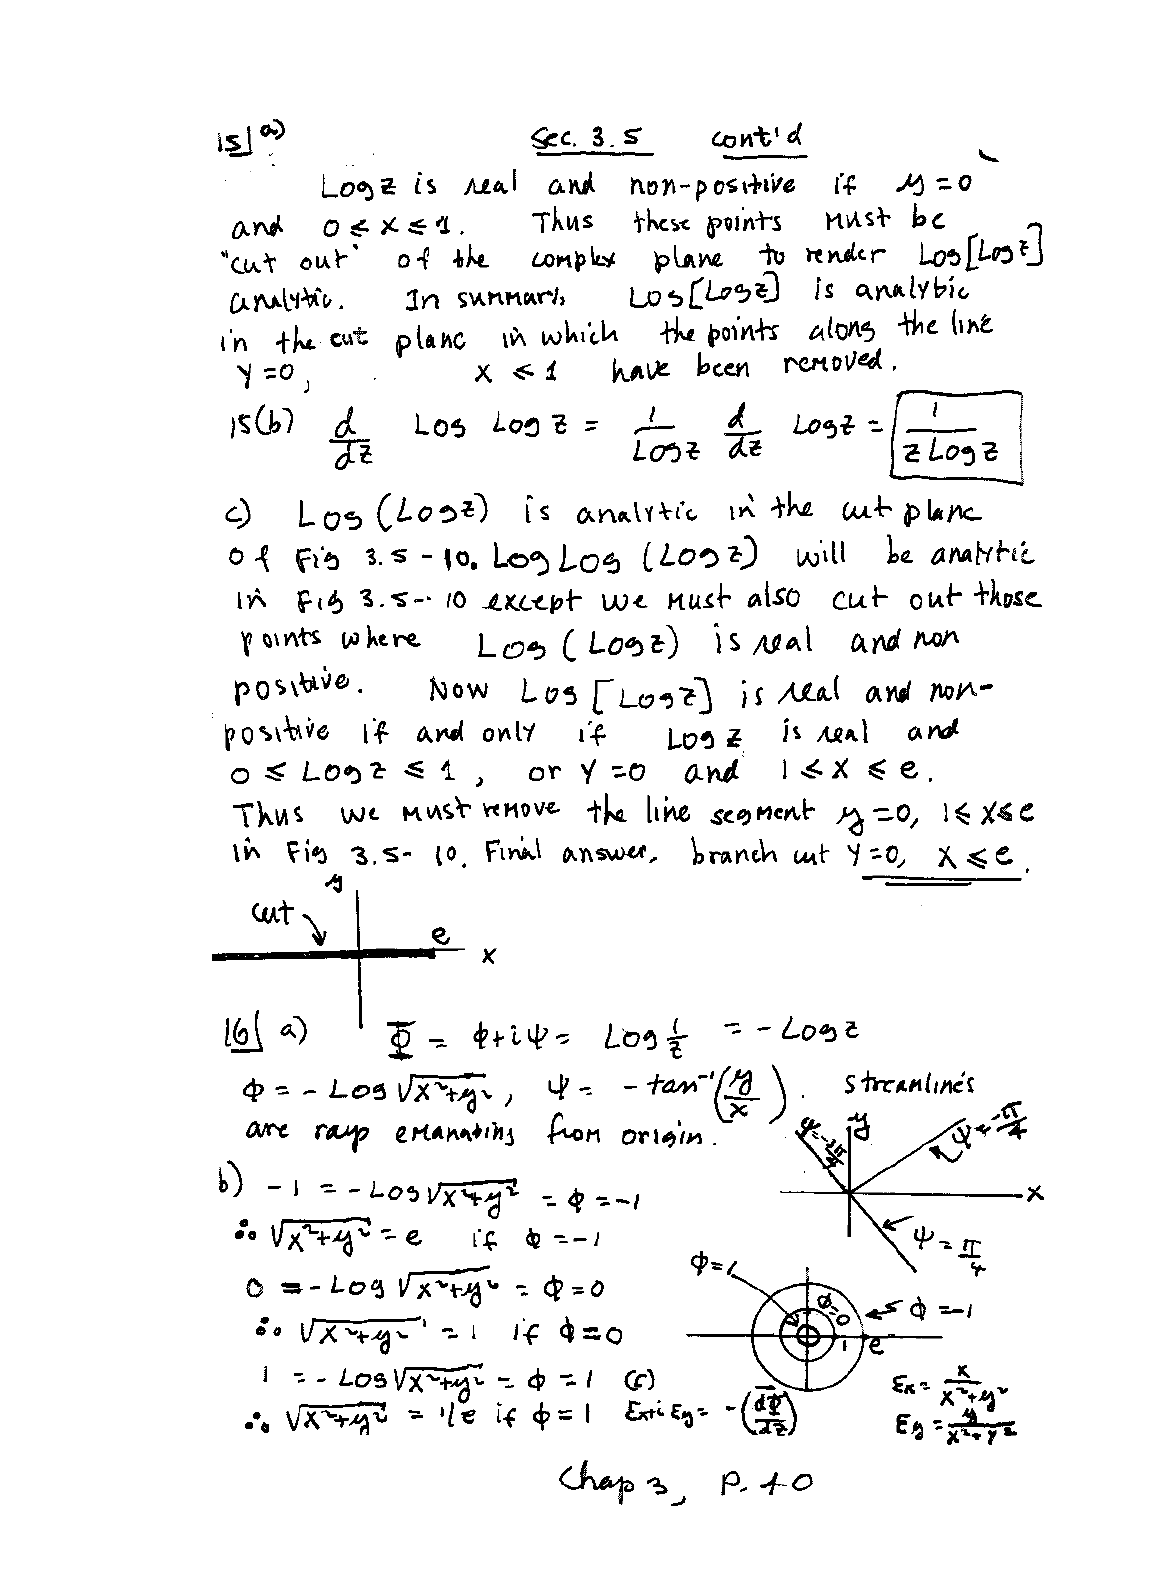 15| a) Sec. 3.5 cont'd
Log z is real and non-positive if y = 0
and 0 ≤ x ≤ 1. Thus these points must be
"cut out" of the complex plane to render Log[Log z]
analytic. In summary, Log[Log z] is analytic
in the cut plane in which the points along the line
y = 0, x ≤ 1 have been removed.
15(b) d/dz Log Log z = 1/Log z d/dz Log z = 1/(z Log z)
c) Log (Log z) is analytic in the cut plane
of Fig 3.5-10. Log Log (Log z) will be analytic
in Fig 3.5-10 except we must also cut out those
points where Log (Log z) is real and non
positive. Now Log [Log z] is real and non-
positive if and only if Log z is real and
0 ≤ Log z ≤ 1, or y = 0 and 1 ≤ x ≤ e.
Thus we must remove the line segment y = 0, 1 ≤ x ≤ e
in Fig 3.5-10. Final answer, branch cut y = 0, x ≤ e.
y
cut
e
x
16| a) Φ = φ + iψ = Log 1/z = - Log z
φ = - Log √(x²+y²), ψ = - tan⁻¹(y/x). Streamlines
are rays emanating from origin.
y
ψ = -3π/4
ψ = -π/4
x
ψ = π/4
b) -1 = - Log √(x²+y²) = φ = -1
∴ √(x²+y²) = e if φ = -1
0 = - Log √(x²+y²) = φ = 0
∴ √(x²+y²) = 1 if φ = 0
1 = - Log √(x²+y²) = φ = 1
∴ √(x²+y²) = 1/e if φ = 1
φ = 1
φ = 0
φ = -1
1 e
(c)
Ex + i Ey = - (dΦ/dz)
Ex = x/(x²+y²)
Ey = y/(x²+y²)
Chap 3, p. 40